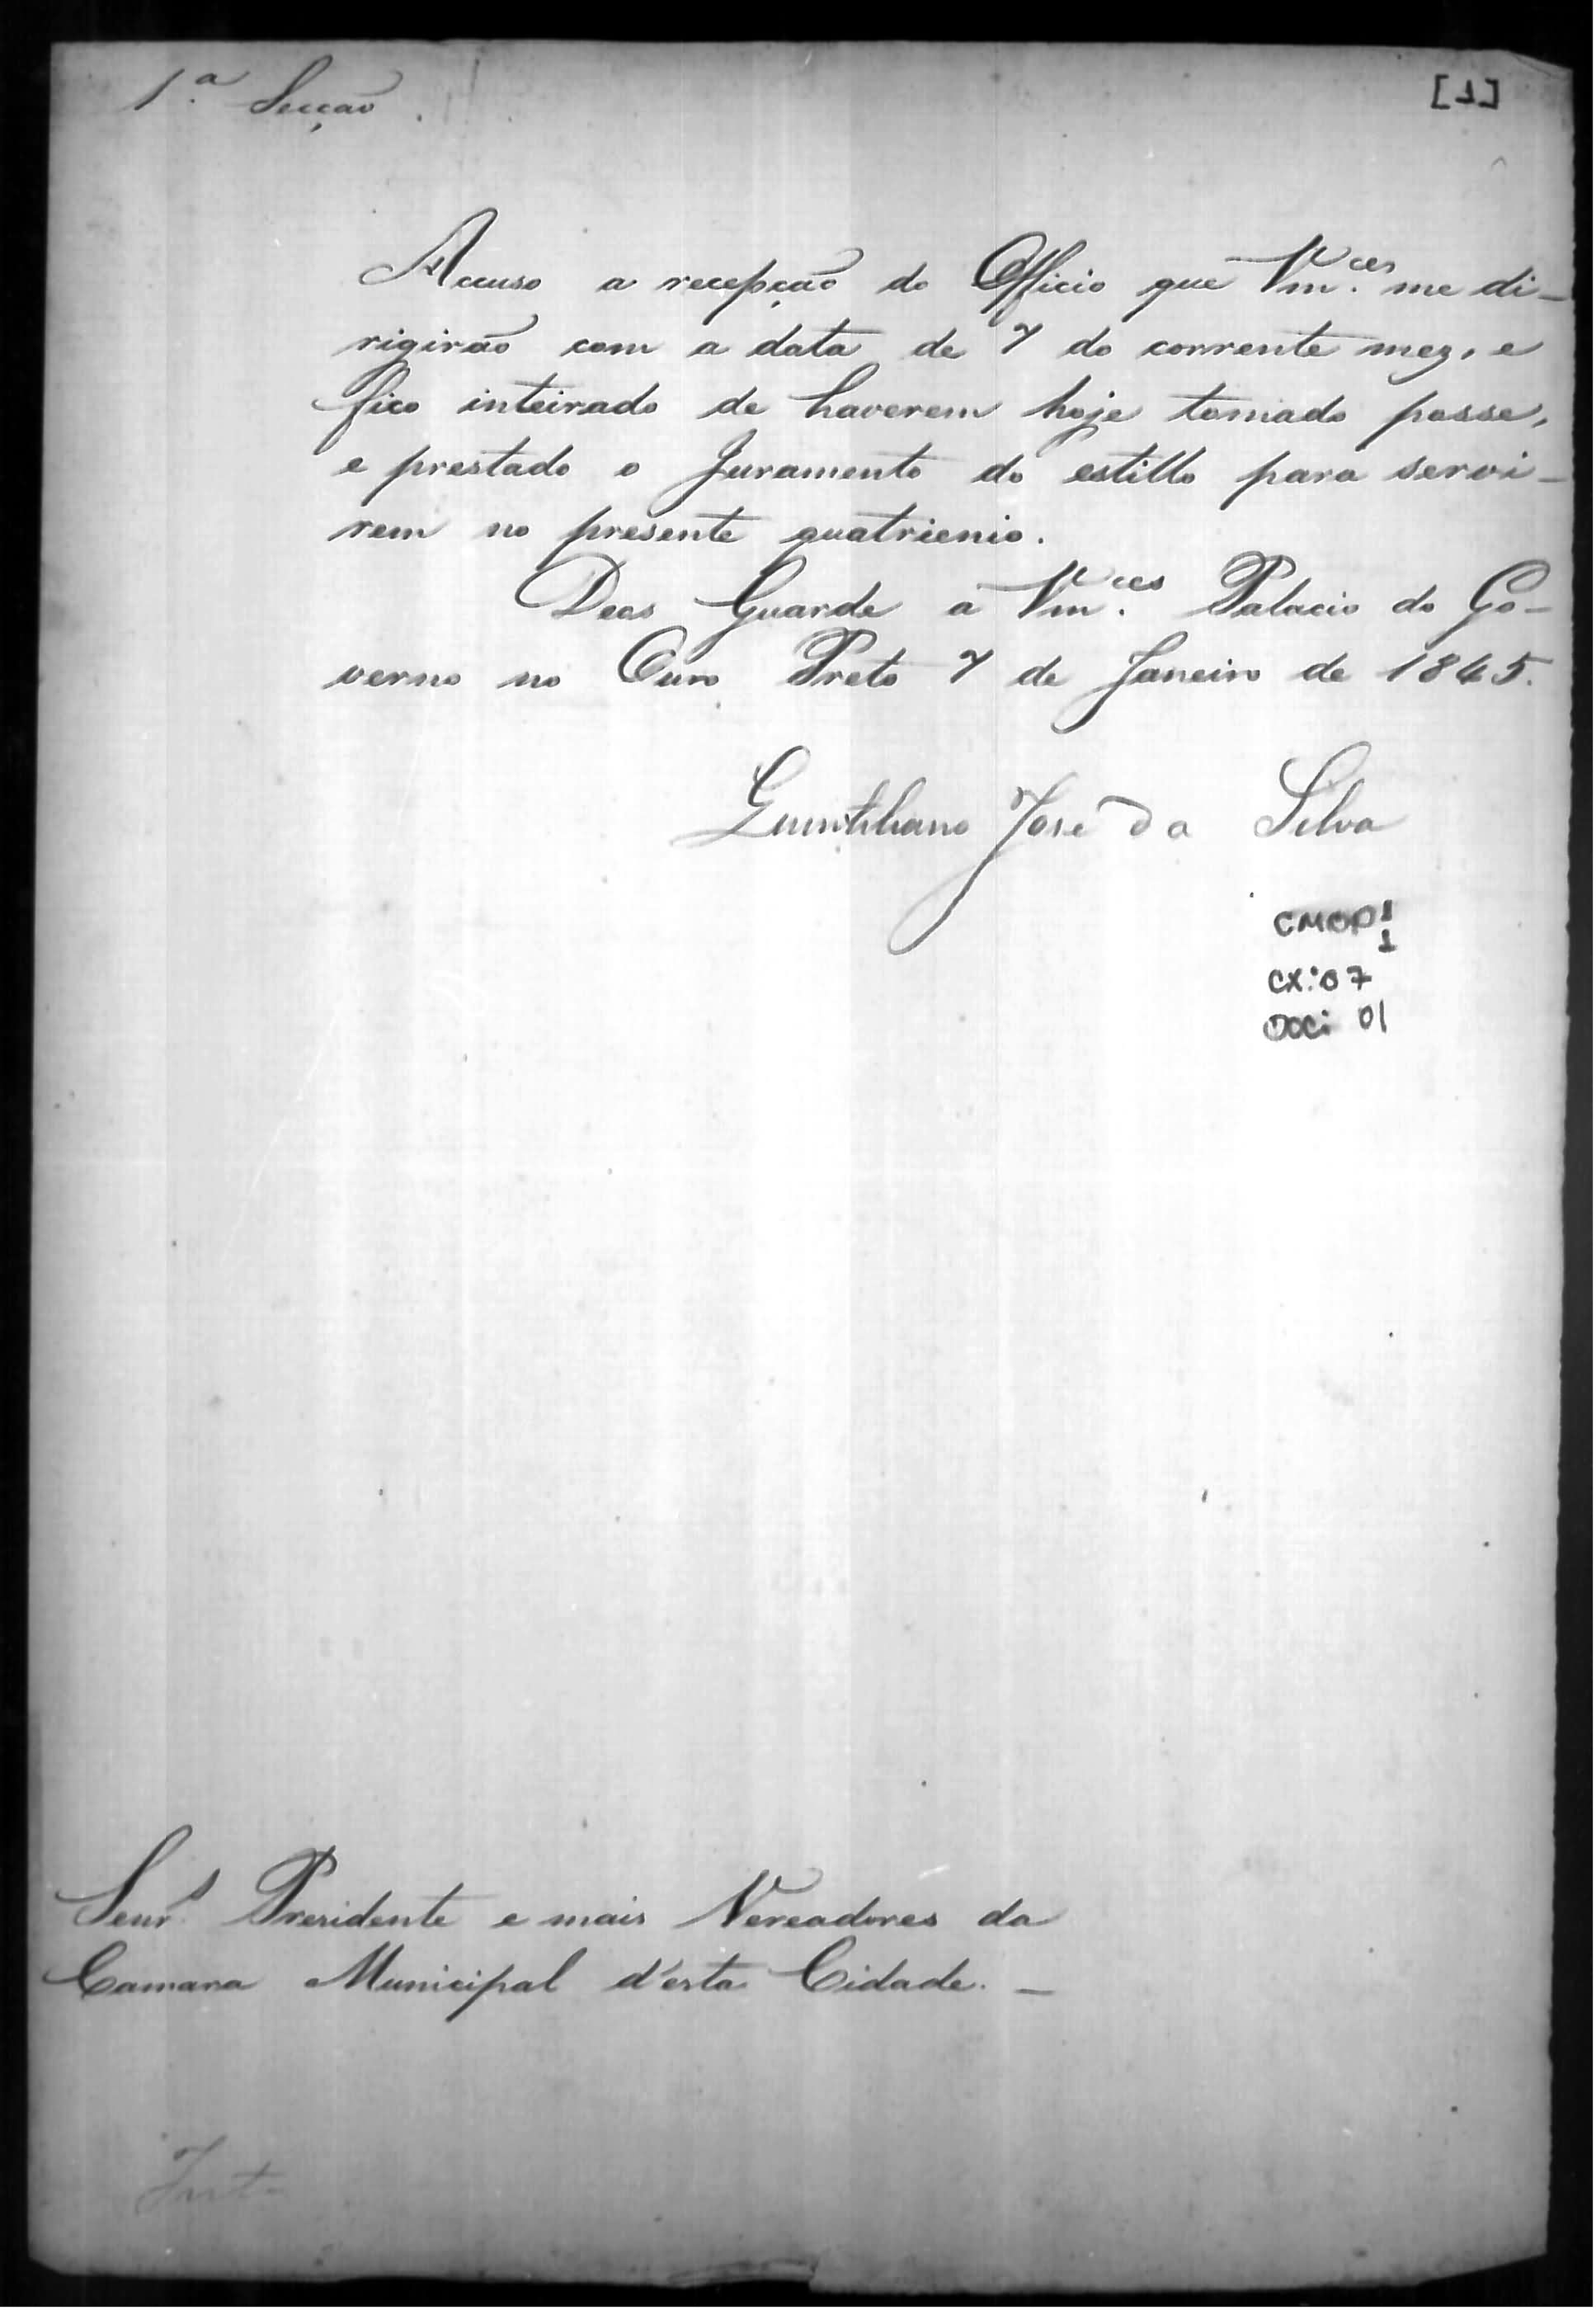 1.ª Secção.
[1]
Accuso a recepção do Officio que Vm.ces me di-
rigirão com a data de 7 do corrente mez, e
fico inteirado de haverem hoje tomado posse,
e prestado o Juramento do estillo para servi-
rem no presente quatrienio.
Deos Guarde a Vm.ces Palacio do Go-
verno no Ouro Preto 7 de Janeiro de 1845.
Quintiliano José da Silva
CMOP
1
CX: 07
DOC: 01
Senr.s Presidente e mais Vereadores da
Camara Municipal d'esta Cidade. -